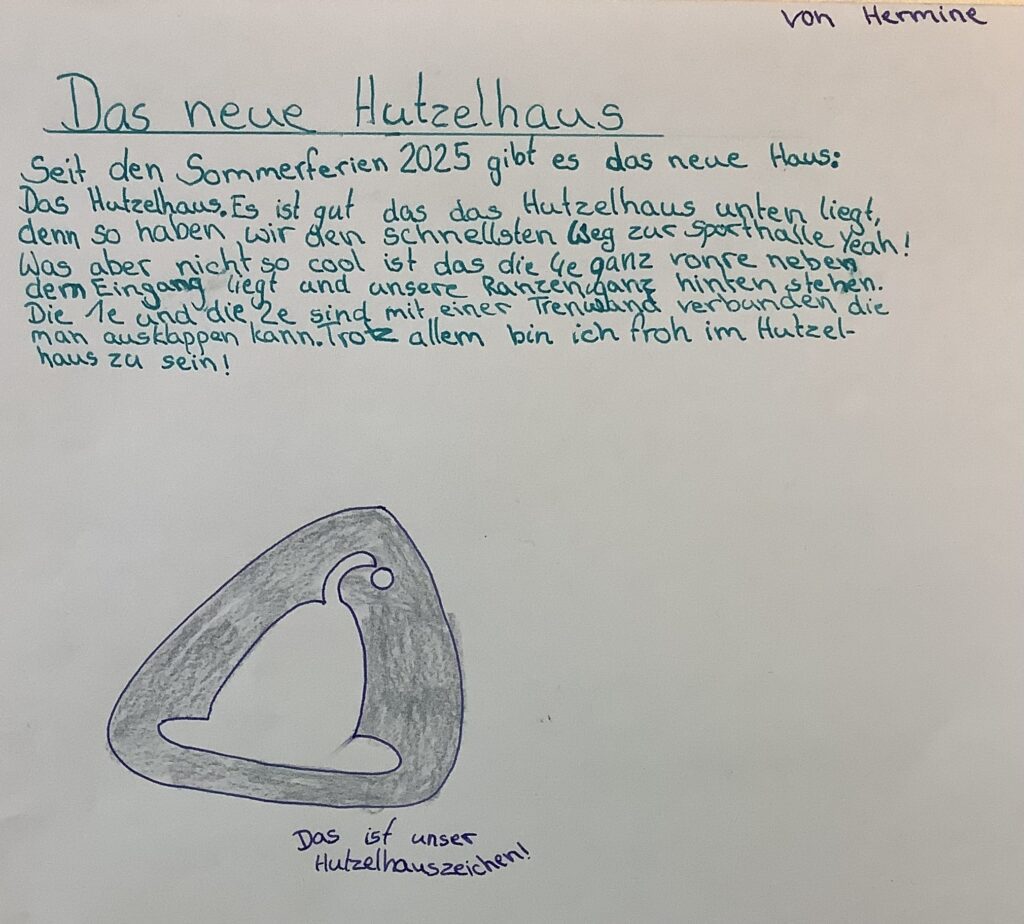 von Hermine
Das neue Hutzelhaus
Seit den Sommerferien 2025 gibt es das neue Haus:
Das Hutzelhaus. Es ist gut das das Hutzelhaus unten liegt,
denn so haben wir den schnellsten Weg zur Sporthalle Yeah!
Was aber nicht so cool ist das die 4e ganz vorne neben
dem Eingang liegt und unsere Ranzen ganz hinten stehen.
Die 1e und die 2e sind mit einer Trenwand verbunden die
man ausklappen kann. Trotz allem bin ich froh im Hutzel-
haus zu sein!
Das ist unser
Hutzelhauszeichen!